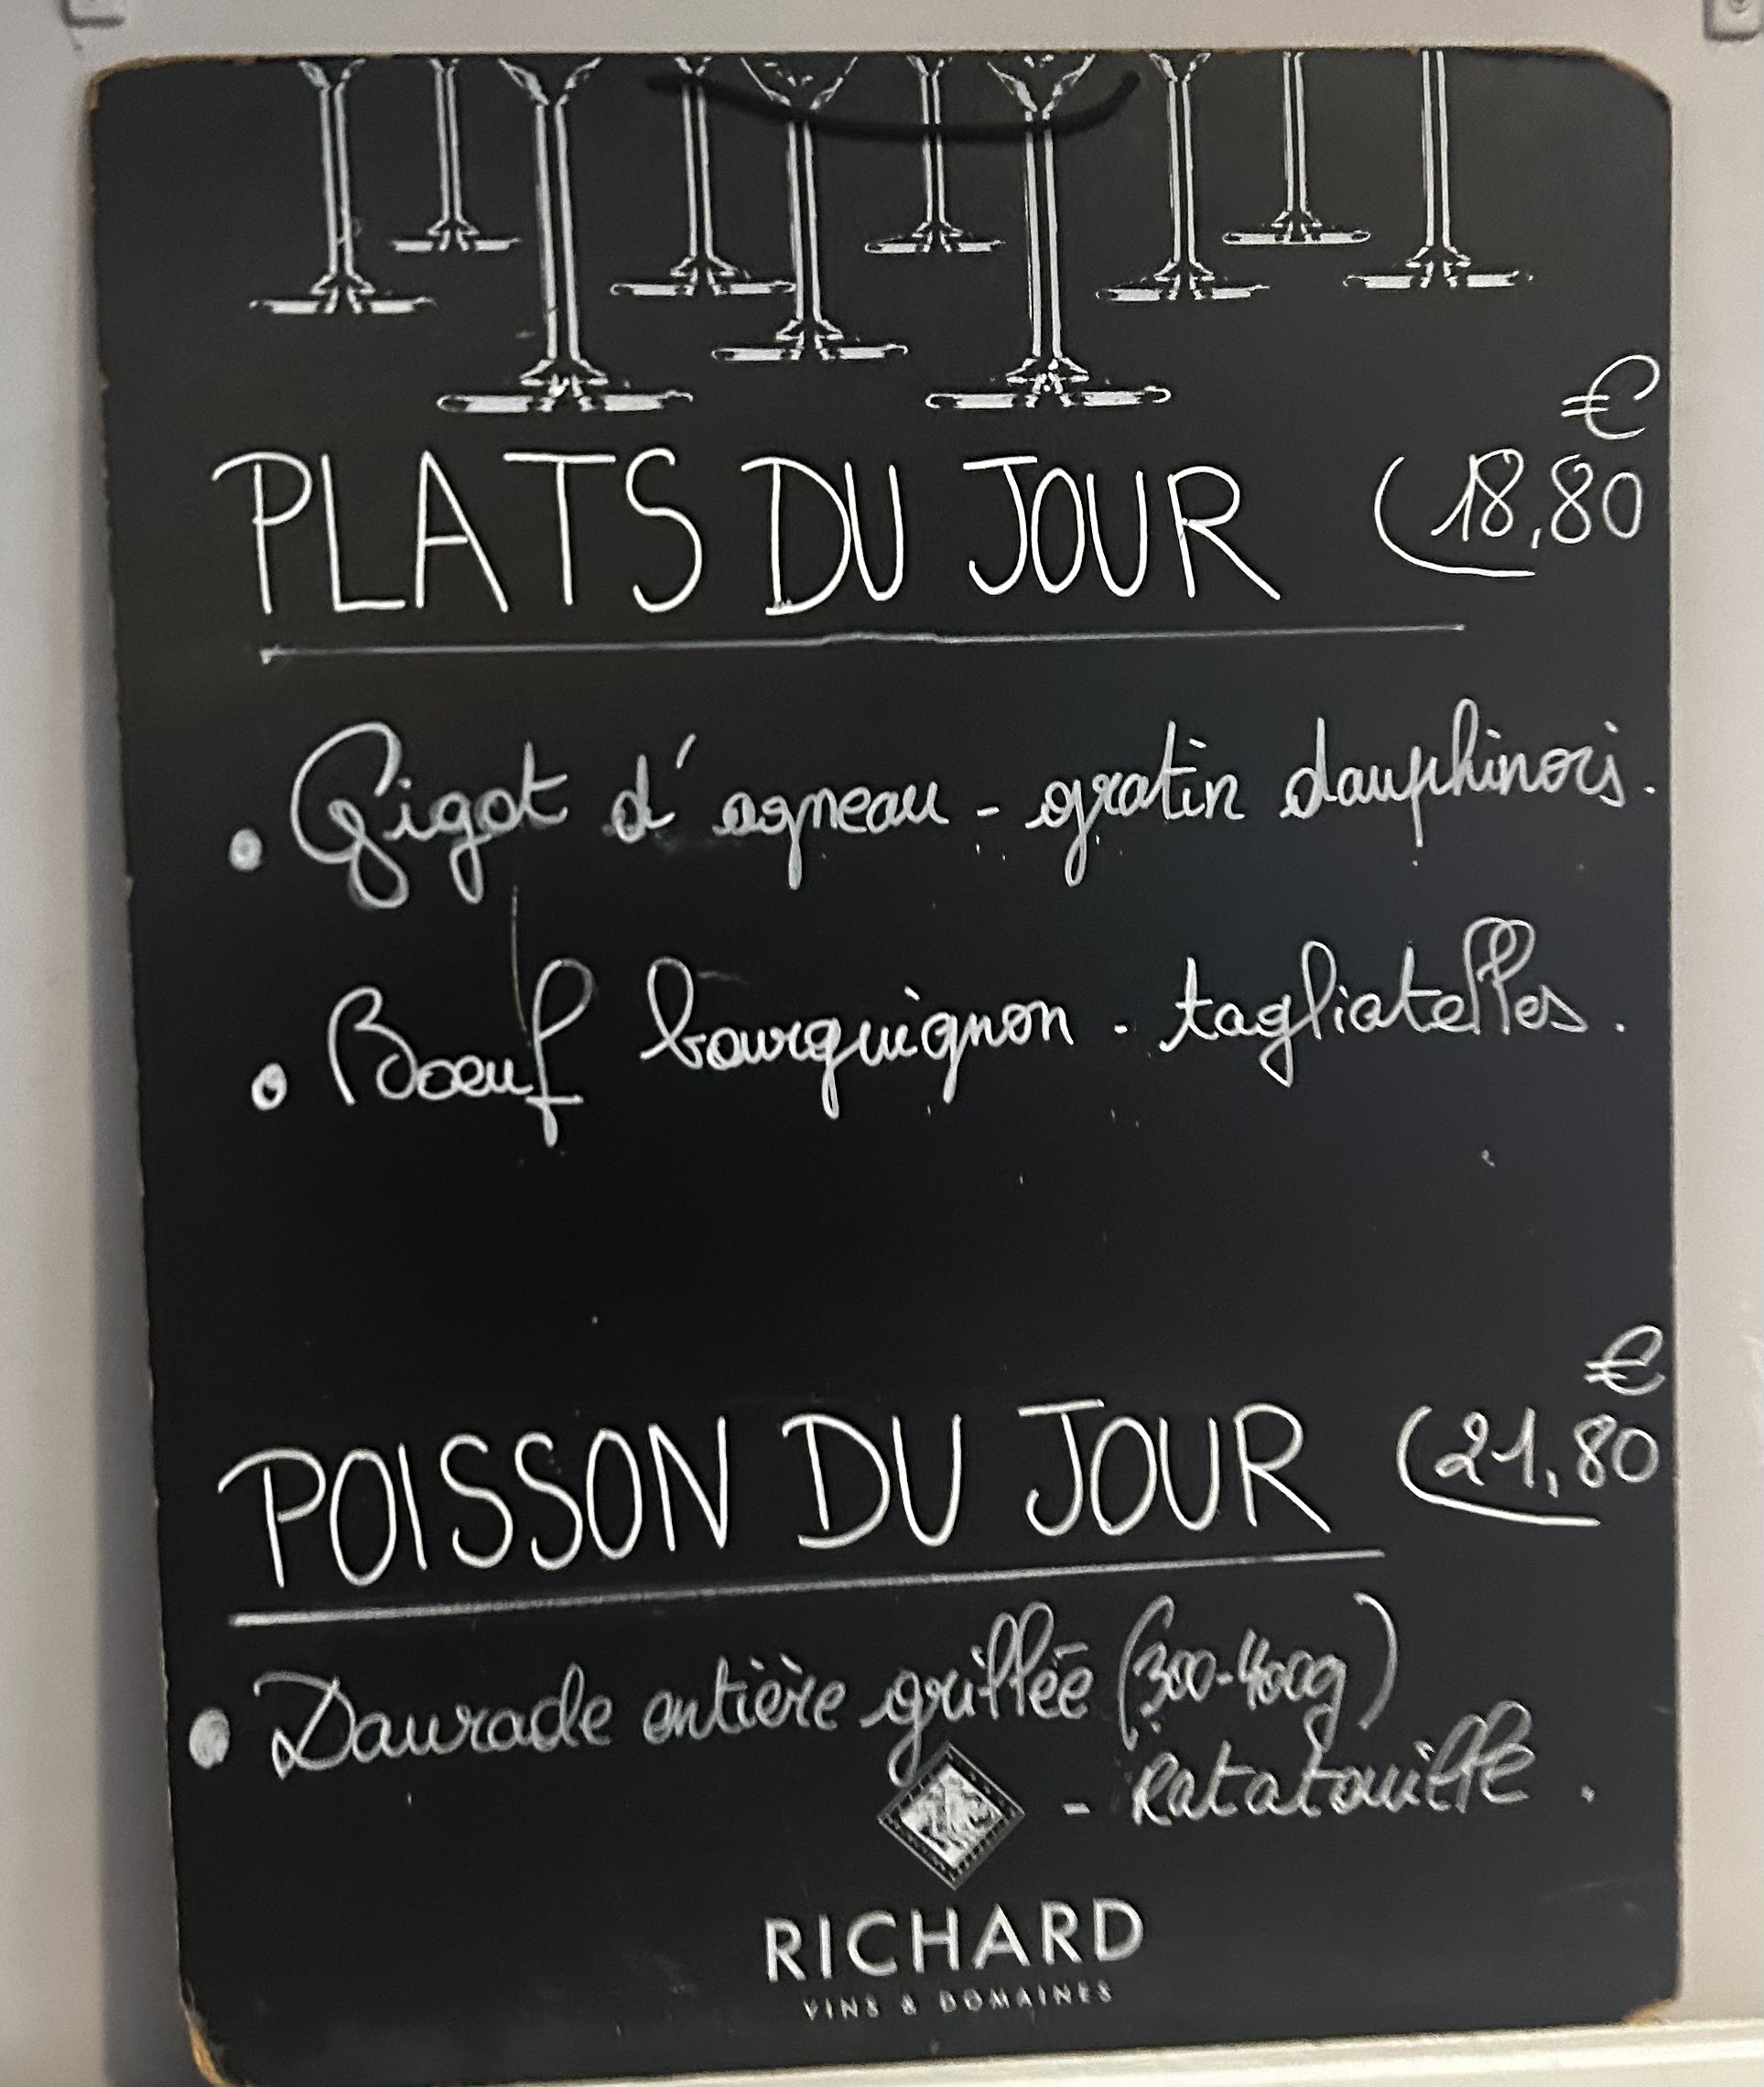 €
PLATS DU JOUR (18,80
• Gigot d'agneau - gratin dauphinois.
• Boeuf bourguignon - tagliatelles.
€
POISSON DU JOUR (21,80
• Daurade entière grillée (300-400g)
- Ratatouille.
RICHARD
VINS & DOMAINES